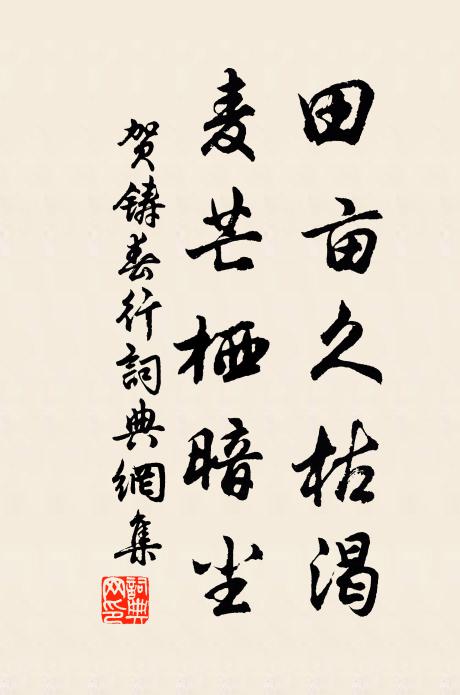 田亩久枯渴
麦芒栖暗尘
贺铸春行詞典網集
詞典网印